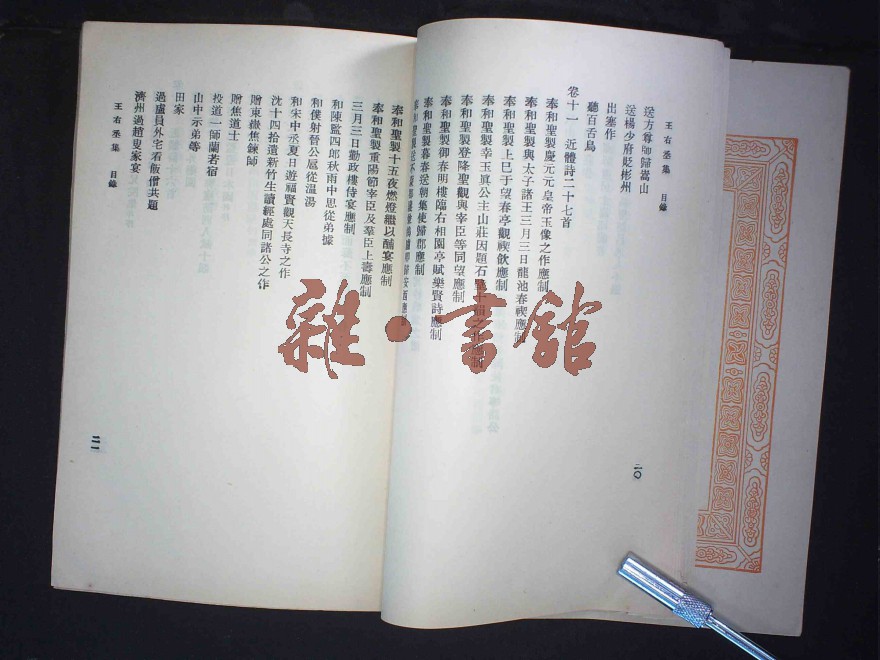 王右丞集 目錄
送方尊師歸嵩山
送楊少府貶郴州
出塞作
聽百舌鳥
卷十一 近體詩二十七首
奉和聖製慶元元皇帝玉像之作應制
奉和聖製與太子諸王三月三日龍池春禊應制
奉和聖製上巳于望春亭觀禊飲應制
奉和聖製幸玉真公主山莊因題石壁十韻之作應制
奉和聖製登降聖觀與宰臣等同望應制
奉和聖製御春明樓臨右相園亭賦樂賢詩應制
奉和聖製暮春送朝集使歸郡應制
奉和聖製十五夜燃燈繼以酺宴應制
奉和聖製重陽節宰臣及羣臣上壽應制
三月三日勤政樓侍宴應制
和陳監四郎秋雨中思從弟據
和僕射晉公扈從温湯
和宋中丞夏日遊福賢觀天長寺之作
沈十四拾遺新竹生讀經處同諸公之作
贈東嶽焦鍊師
贈焦道士
投道一師蘭若宿
山中示弟等
田家
過盧員外宅看飯僧共題
濟州過趙叟家宴
王右丞集 目錄
二〇
二一
雜·書館